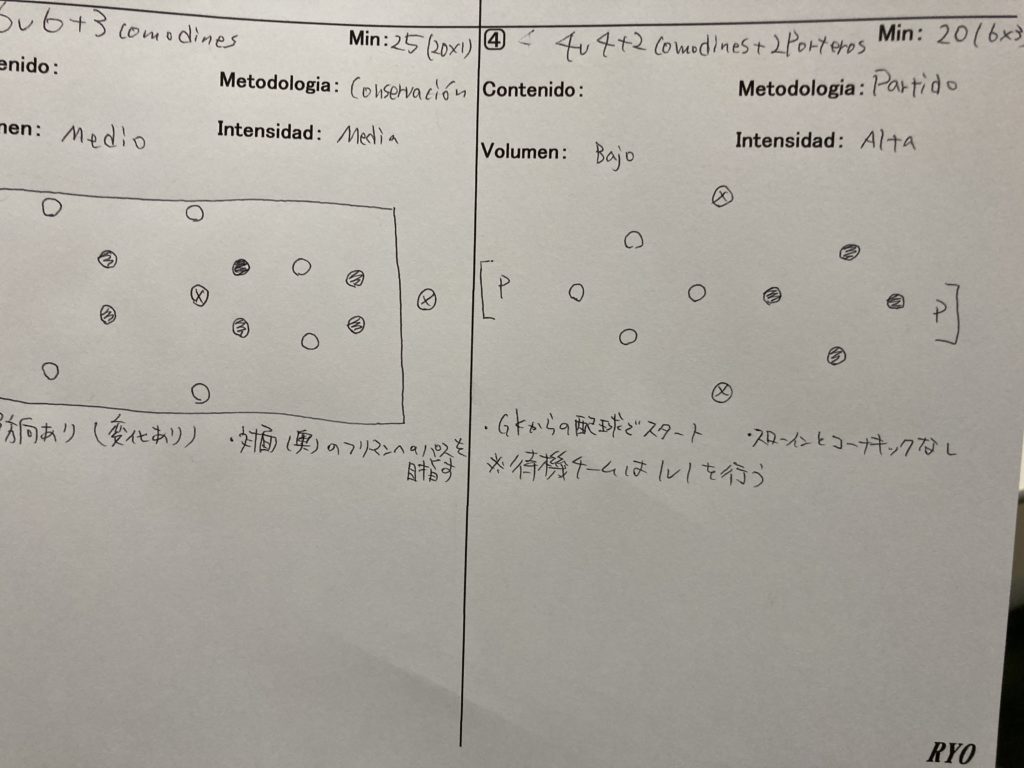 6v6+3 comodines
Min: 25 (20x1)
enido:
Metodologia: Conservación
men: Medio
Intensidad: Media
方向あり (変化あり)
・対面(奥)のフリーマンへのパスを
目指す
④ 4v4+2 comodines+2Porteros
Min: 20 (6x3
Contenido:
Metodologia: Partido
Volumen: Bajo
Intensidad: Alta
P
P
・GKからの配球でスタート
・スローインとコーナーキックなし
※待機チームは1v1を行う
RYO